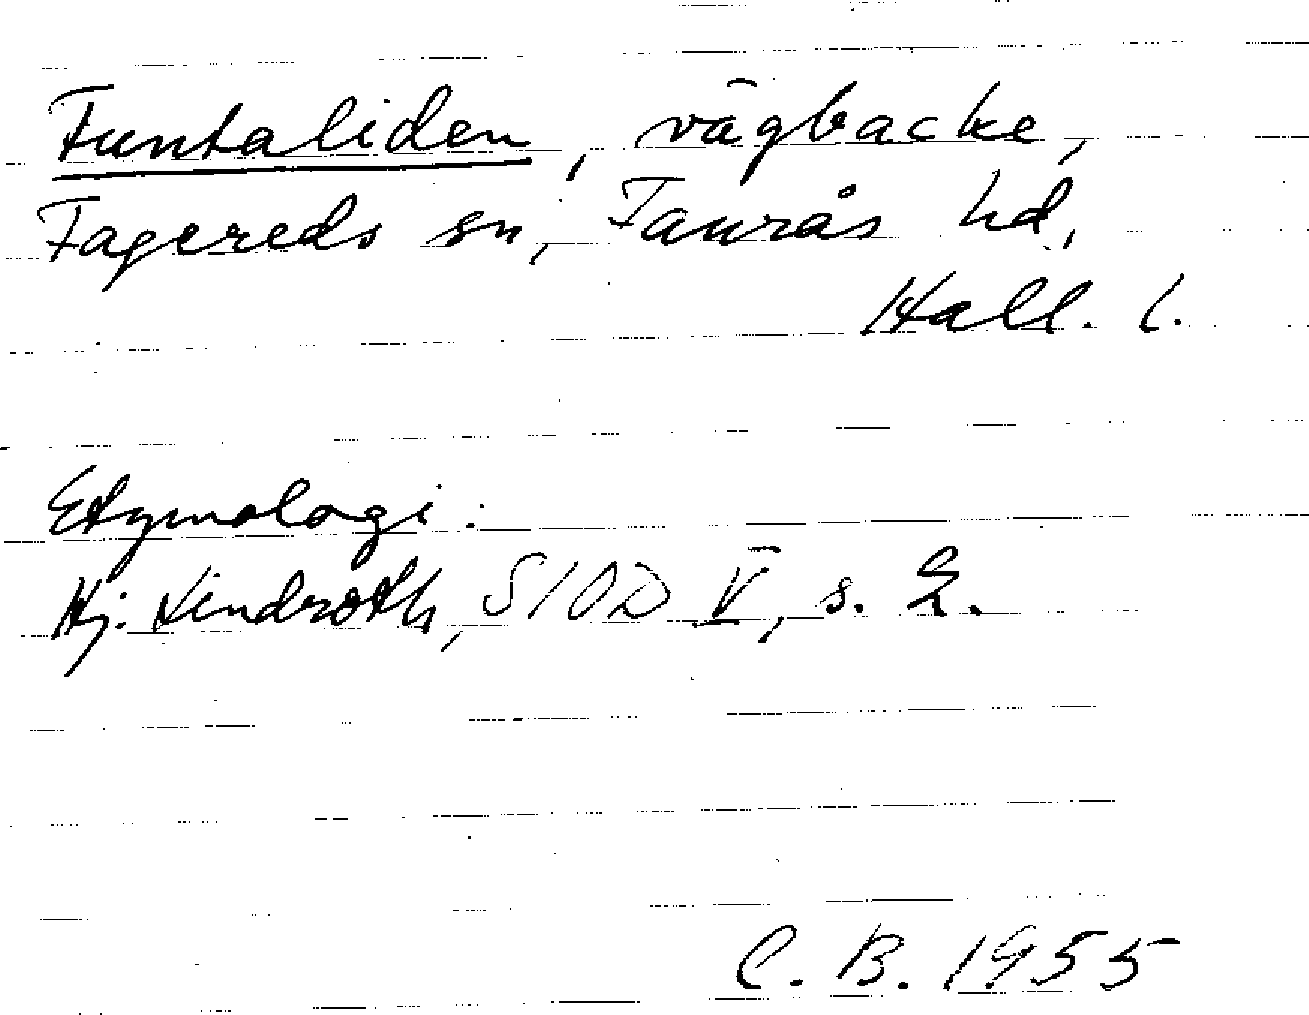 Funtaliden, vägbacke,
Fagereds sn, Faurås hd,
Hall. l.
Etymologi:
Hj. Lindroth, SIOD V, s. 2.
C. B. 1955